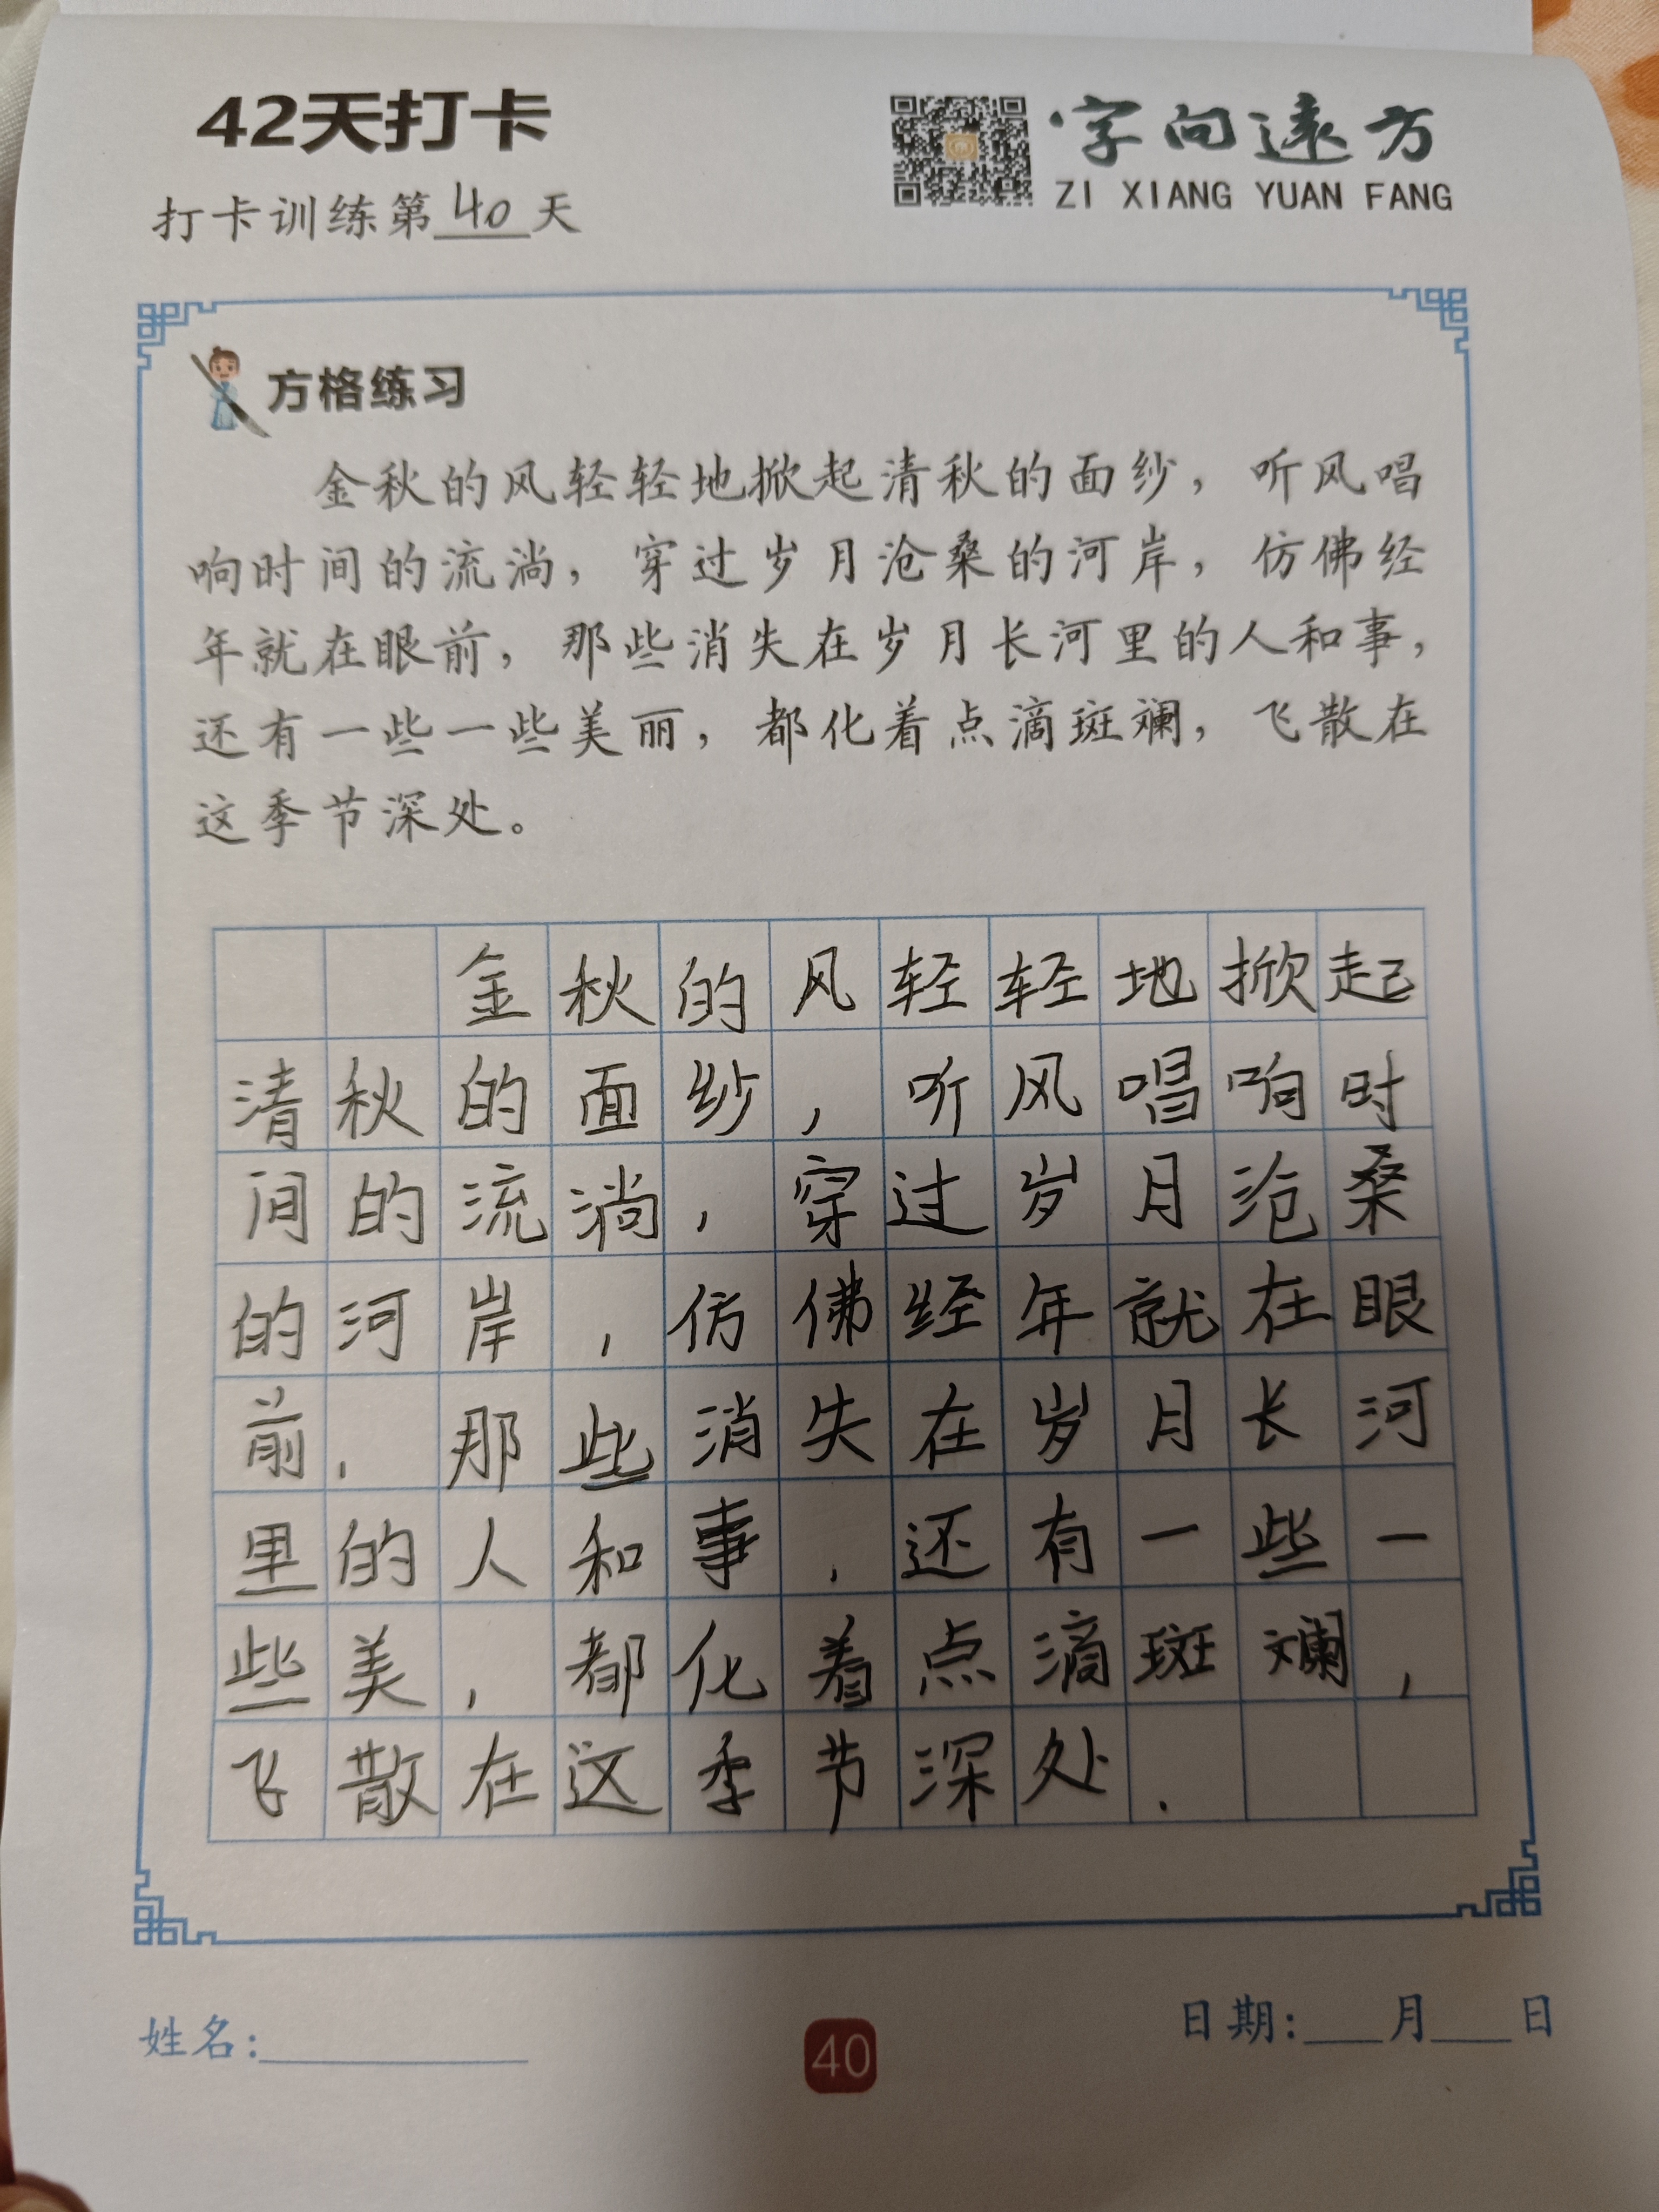 42天打卡
字向远方
ZI XIANG YUAN FANG
打卡训练第40天
方格练习
金秋的风轻轻地掀起清秋的面纱，听风唱
响时间的流淌，穿过岁月沧桑的河岸，仿佛经
年就在眼前，那些消失在岁月长河里的人和事，
还有一些一些美丽，都化着点滴斑斓，飞散在
这季节深处。
金秋的风轻轻地掀起
清秋的面纱，听风唱响时
间的流淌，穿过岁月沧桑
的河岸，仿佛经年就在眼
前，那些消失在岁月长河
里的人和事，还有一些一
些美，都化着点滴斑斓，
飞散在这季节深处.
姓名:
40
日期:___月___日